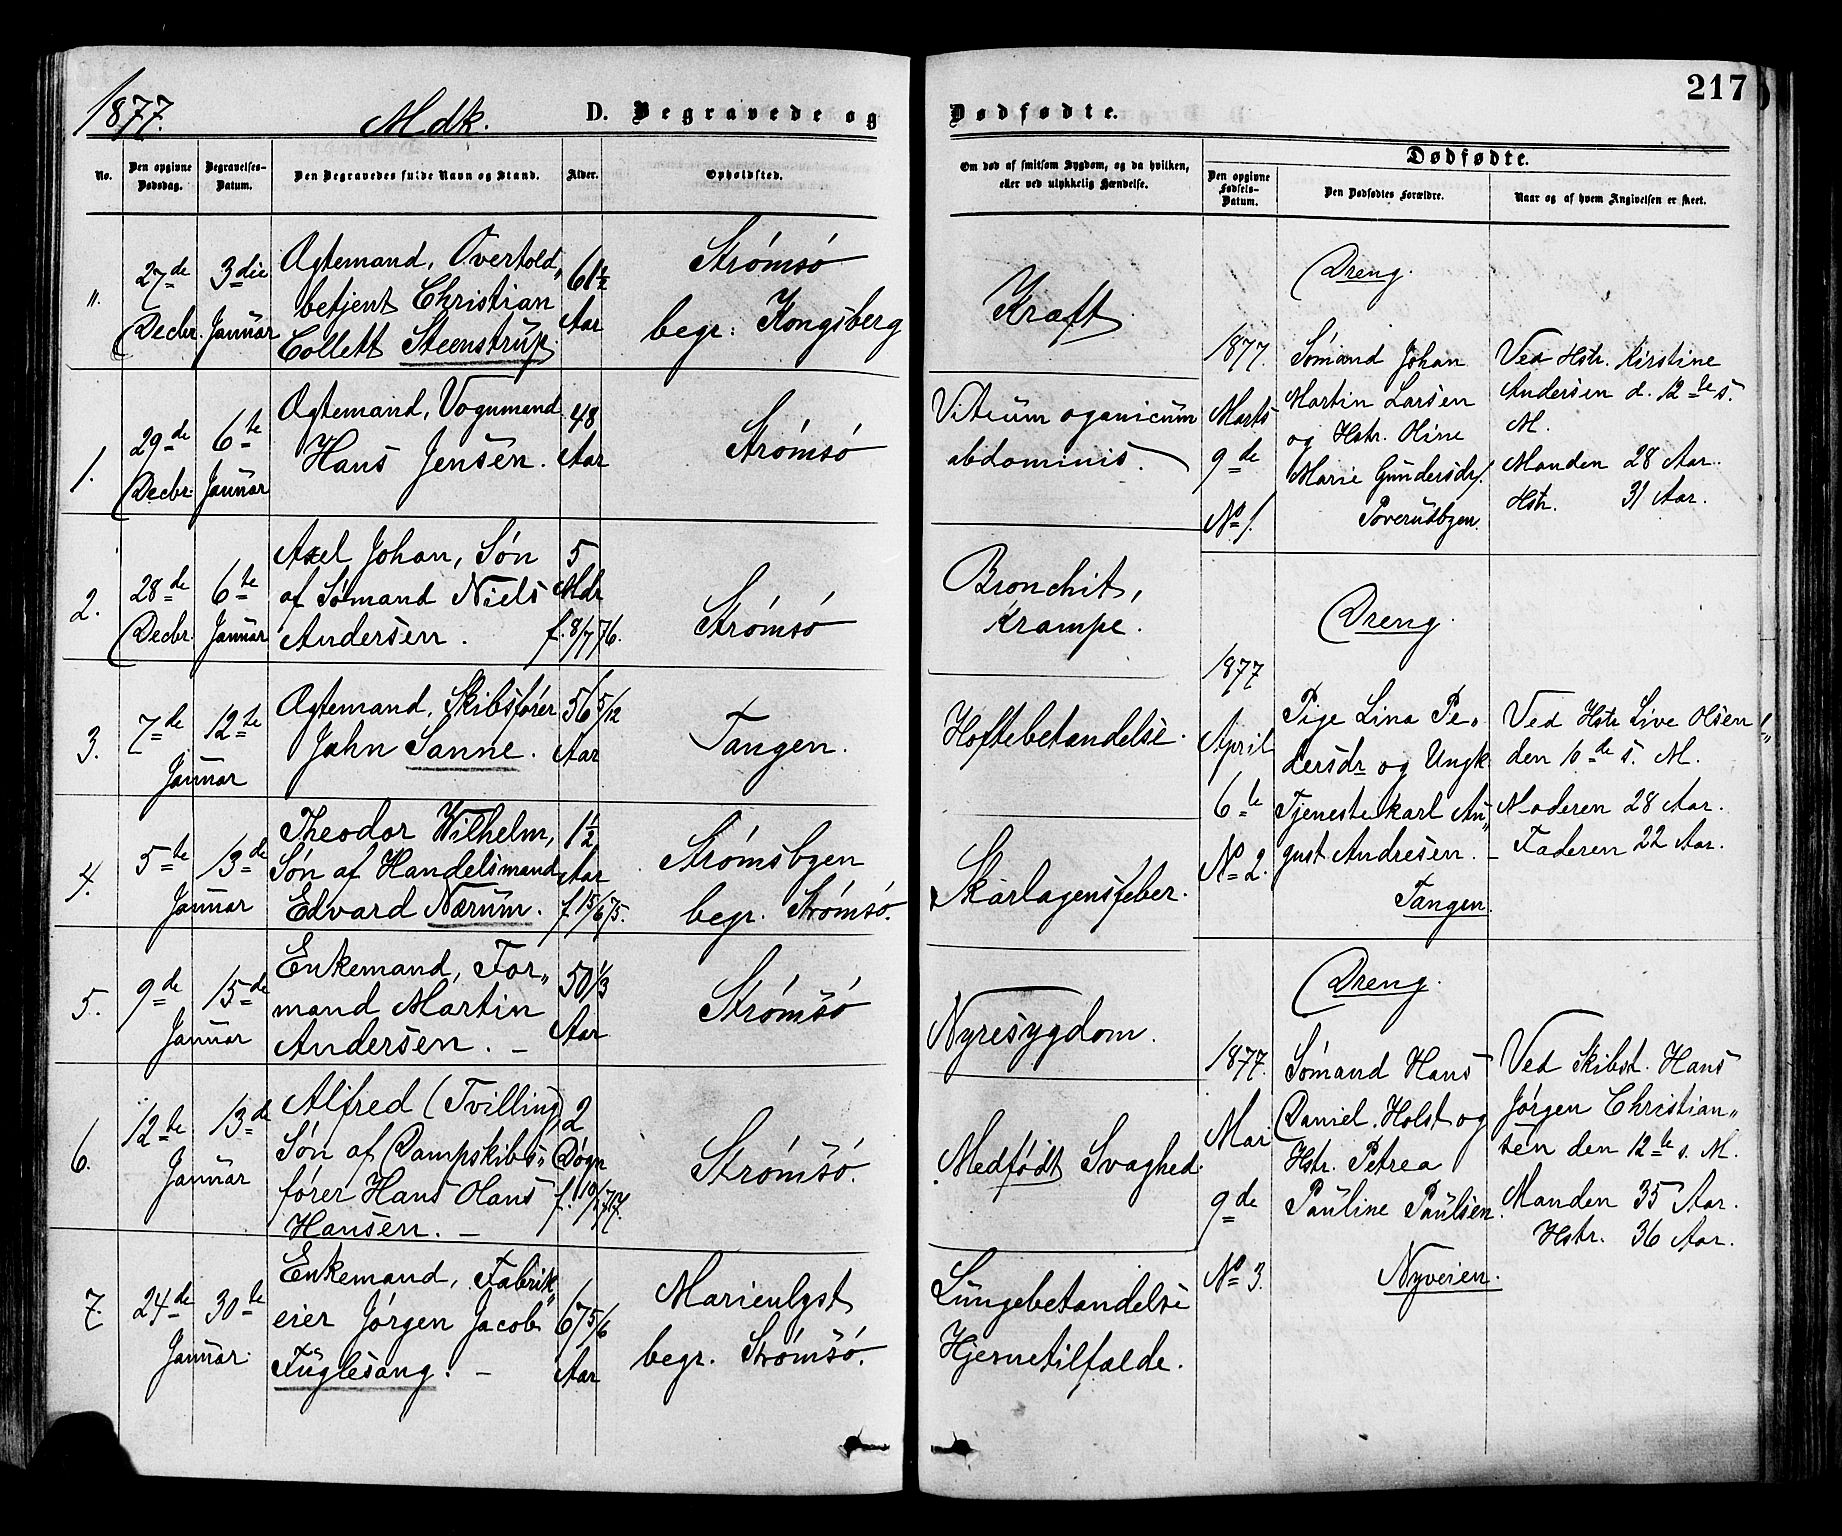 217
1877.
Mdk.
D. Begravede og
Dødfødte.
No.
Den opgivne Dødsdag.
Begravelses-Datum.
Den Begravedes fulde Navn og Stand.
Alder.
Opholdsted.
Om død af smitsom Sygdom, og da hvilken,
eller ved ulykkelig Hændelse.
Dødfødte.
Den opgivne Fødsels-Datum.
Den Dødfødtes Forældre.
Naar og af hvem Angivelsen er skeet.
„.
27de Decbr.
3die Januar
Ægtemand, Overtold„
betjent Christian
Collett Steenstrup.
61½
Aar
Strømsø
begr: Kongsberg
Kræft
1.
29de Decbr:
6te Januar
Ægtemand, Vognmand
Hans Jensen.
48
Aar
Strømsø
Vitium oganicum
abdominis.
2.
28de Decbr:
6te Januar
Axel Johan, Søn
af Sømand Niels
Andersen.
5
Mdr
f. 8/7 76.
Strømsø
Bronchit,
Krampe.
3.
7de
12te
Januar
Ægtemand, Skibsfører
John Sanne.
56 5/12
Aar
Tangen.
Hoftebetændelse.
4.
5te
13de
Januar
Theodor Wilhelm,
Søn af Handelsmand
Edvard Nærum.
1½
Aar
f 15/6 75.
Strømsbgen
begr. Strømsø.
Skarlagensfeber.
5.
9de
15de
Januar
Enkemand, For„
mand Martin
Andersen. –
50 1/3
Aar
Strømsø
Nyresygdom.
6.
12te
13de
Januar
Alfred (Tvilling)
Søn af Dampskibs„
fører Hans Olaus
Hansen. –
2
Døgn
f. 10/1 77.
Strømsø.
Medfødt Svaghed.
7.
24de
30te
Januar.
Enkemand, Fabrik„
eier Jørgen Jacob
Fuglesang. –
67 5/6
Aar
Marienlyst
begr. Strømsø.
Lungebetændelse
Hjernetilfælde.
Dreng.
1877.
Marts
9de
No 1.
Sømand Johan
Martin Larsen
og Hstr. Oline
Marie Gundersdr.
Toverudbgen.
Ved Hstr. Kirstine
Andersen d. 12te s.
M.
Manden 28 Aar.
Hstr. 31 Aar.
Dreng.
1877
April
6te
No 2.
Pige Lina Pe„
dersdr og Ungk
Tjenestekarl Au„
gust Andresen. –
Tangen.
Ved Hstr Live Olsen
den 10de s. M.
Moderen 28 Aar.
Faderen 22 Aar.
Dreng.
1877.
Mai
9de
No 3.
Sømand Hans
Daniel Holst og
Hstr. Petrea
Pauline Paulsen.
Nyveien.
Ved Skibst. Hans
Jørgen Christian„
sen den 12te s. M.
Manden 35 Aar.
Hstr. 36 Aar.